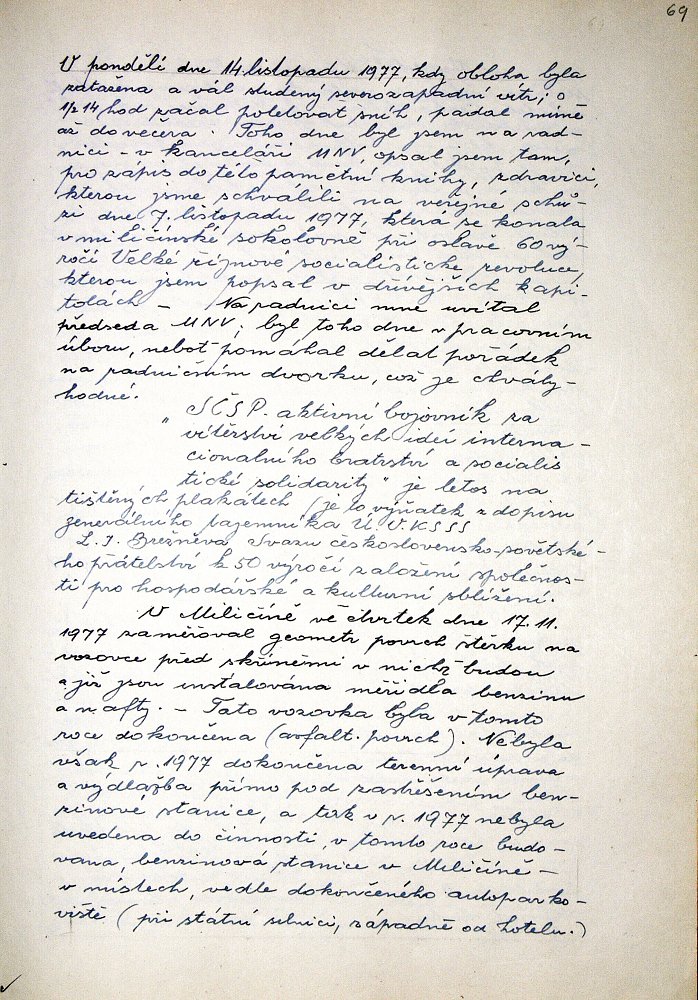 69
V pondělí dne 14. listopadu 1977, kdy obloha byla
zatažena a vál studený severozápadní vítr; o
1/2 14 hod začal poletovat sníh, padal mírně
až do večera. Toho dne byl jsem na rad-
nici - v kanceláři MNV, opsal jsem tam,
pro zápis do této pamětní knihy, zdravici,
kterou jsme schválili na veřejné schů-
zi dne 7. listopadu 1977, která se konala
v miličínské sokolovně při oslavě 60 vý-
ročí Velké říjnové socialisticke revoluce,
kterou jsem popsal v dřívějších kapi-
tolách - Na radnici mne uvítal
předseda MNV; byl toho dne v pracovním
úboru, neboť pomáhal dělat pořádek
na radničním dvorku, což je chvály-
hodné.
"SČSP. aktivní bojovník za
vítězství velkých ideí interna-
cionalního bratrství a socialis
tické solidarity" je letos na
tištěných plakátech, je to výňatek z dopisu
generálního tajemníka Ú.V.KSSS
L. I. Brežněva Svazu československo-sovětské-
ho přátelství k 50 výročí založení společnos-
ti pro hospodářské a kulturní sblížení.
V Miličíně ve čtvrtek dne 17. 11.
1977 zaměřoval geometr povrch štěrku na
vozovce před skříněmi v nichž budou
a již jsou instalována měřidla benzinu
a nafty. - Tato vozovka byla v tomto
roce dokončena (asfalt. povrch). Nebyla
však r. 1977 dokončena terenní úprava
a výdlažba přímo pod zastřešením ben-
zinové stanice, a tak v r. 1977 nebyla
uvedena do činnosti, v tomto roce budo-
vana, benzinová stanice v Miličíně -
v místech, vedle dokončeného autoparko-
viště (při státní silnici, západně od hotelu.)